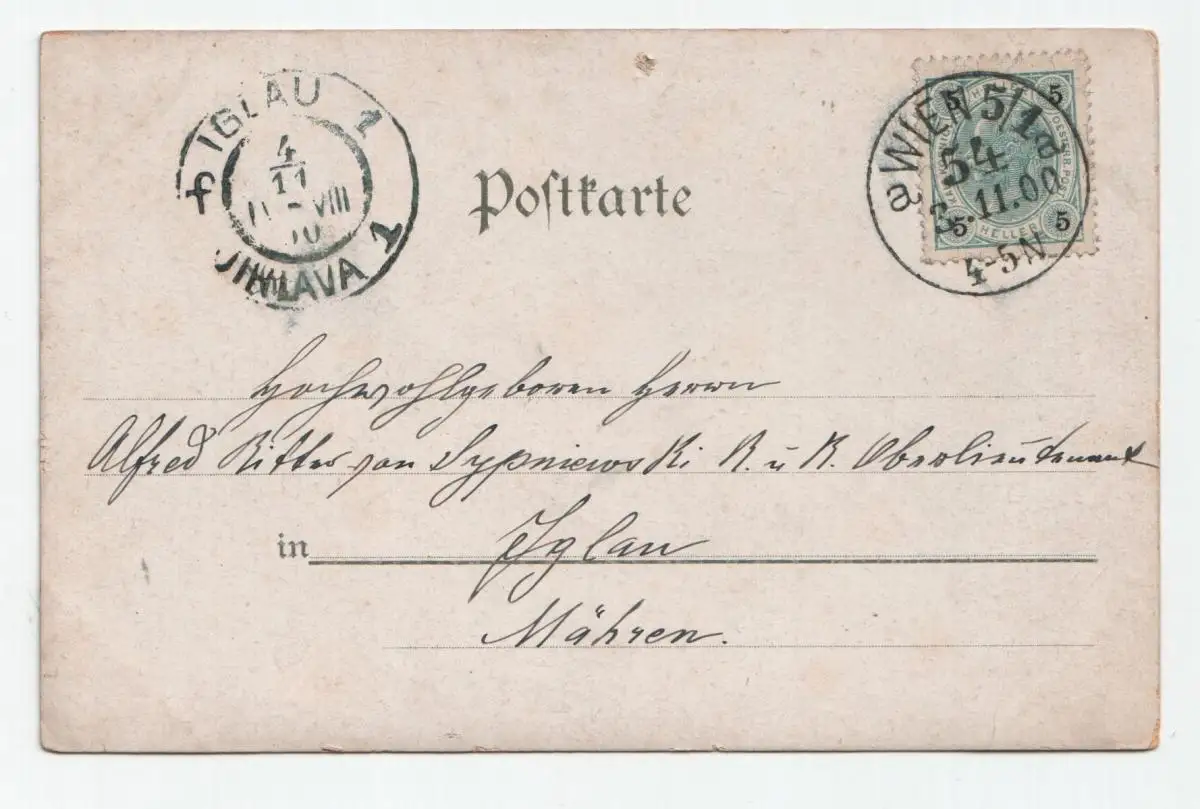 IGLAU 1
4
11
VIII
00
JIHLAVA 1
f
Postkarte
WIEN 5/1a
54
3.11.00
4-5N
a
5
5
5
5
HELLER
Hochwohlgeboren Herrn
Alfred Ritter von Sypniewski K. u. K. Oberlieutenant
in Iglau
Mähren.